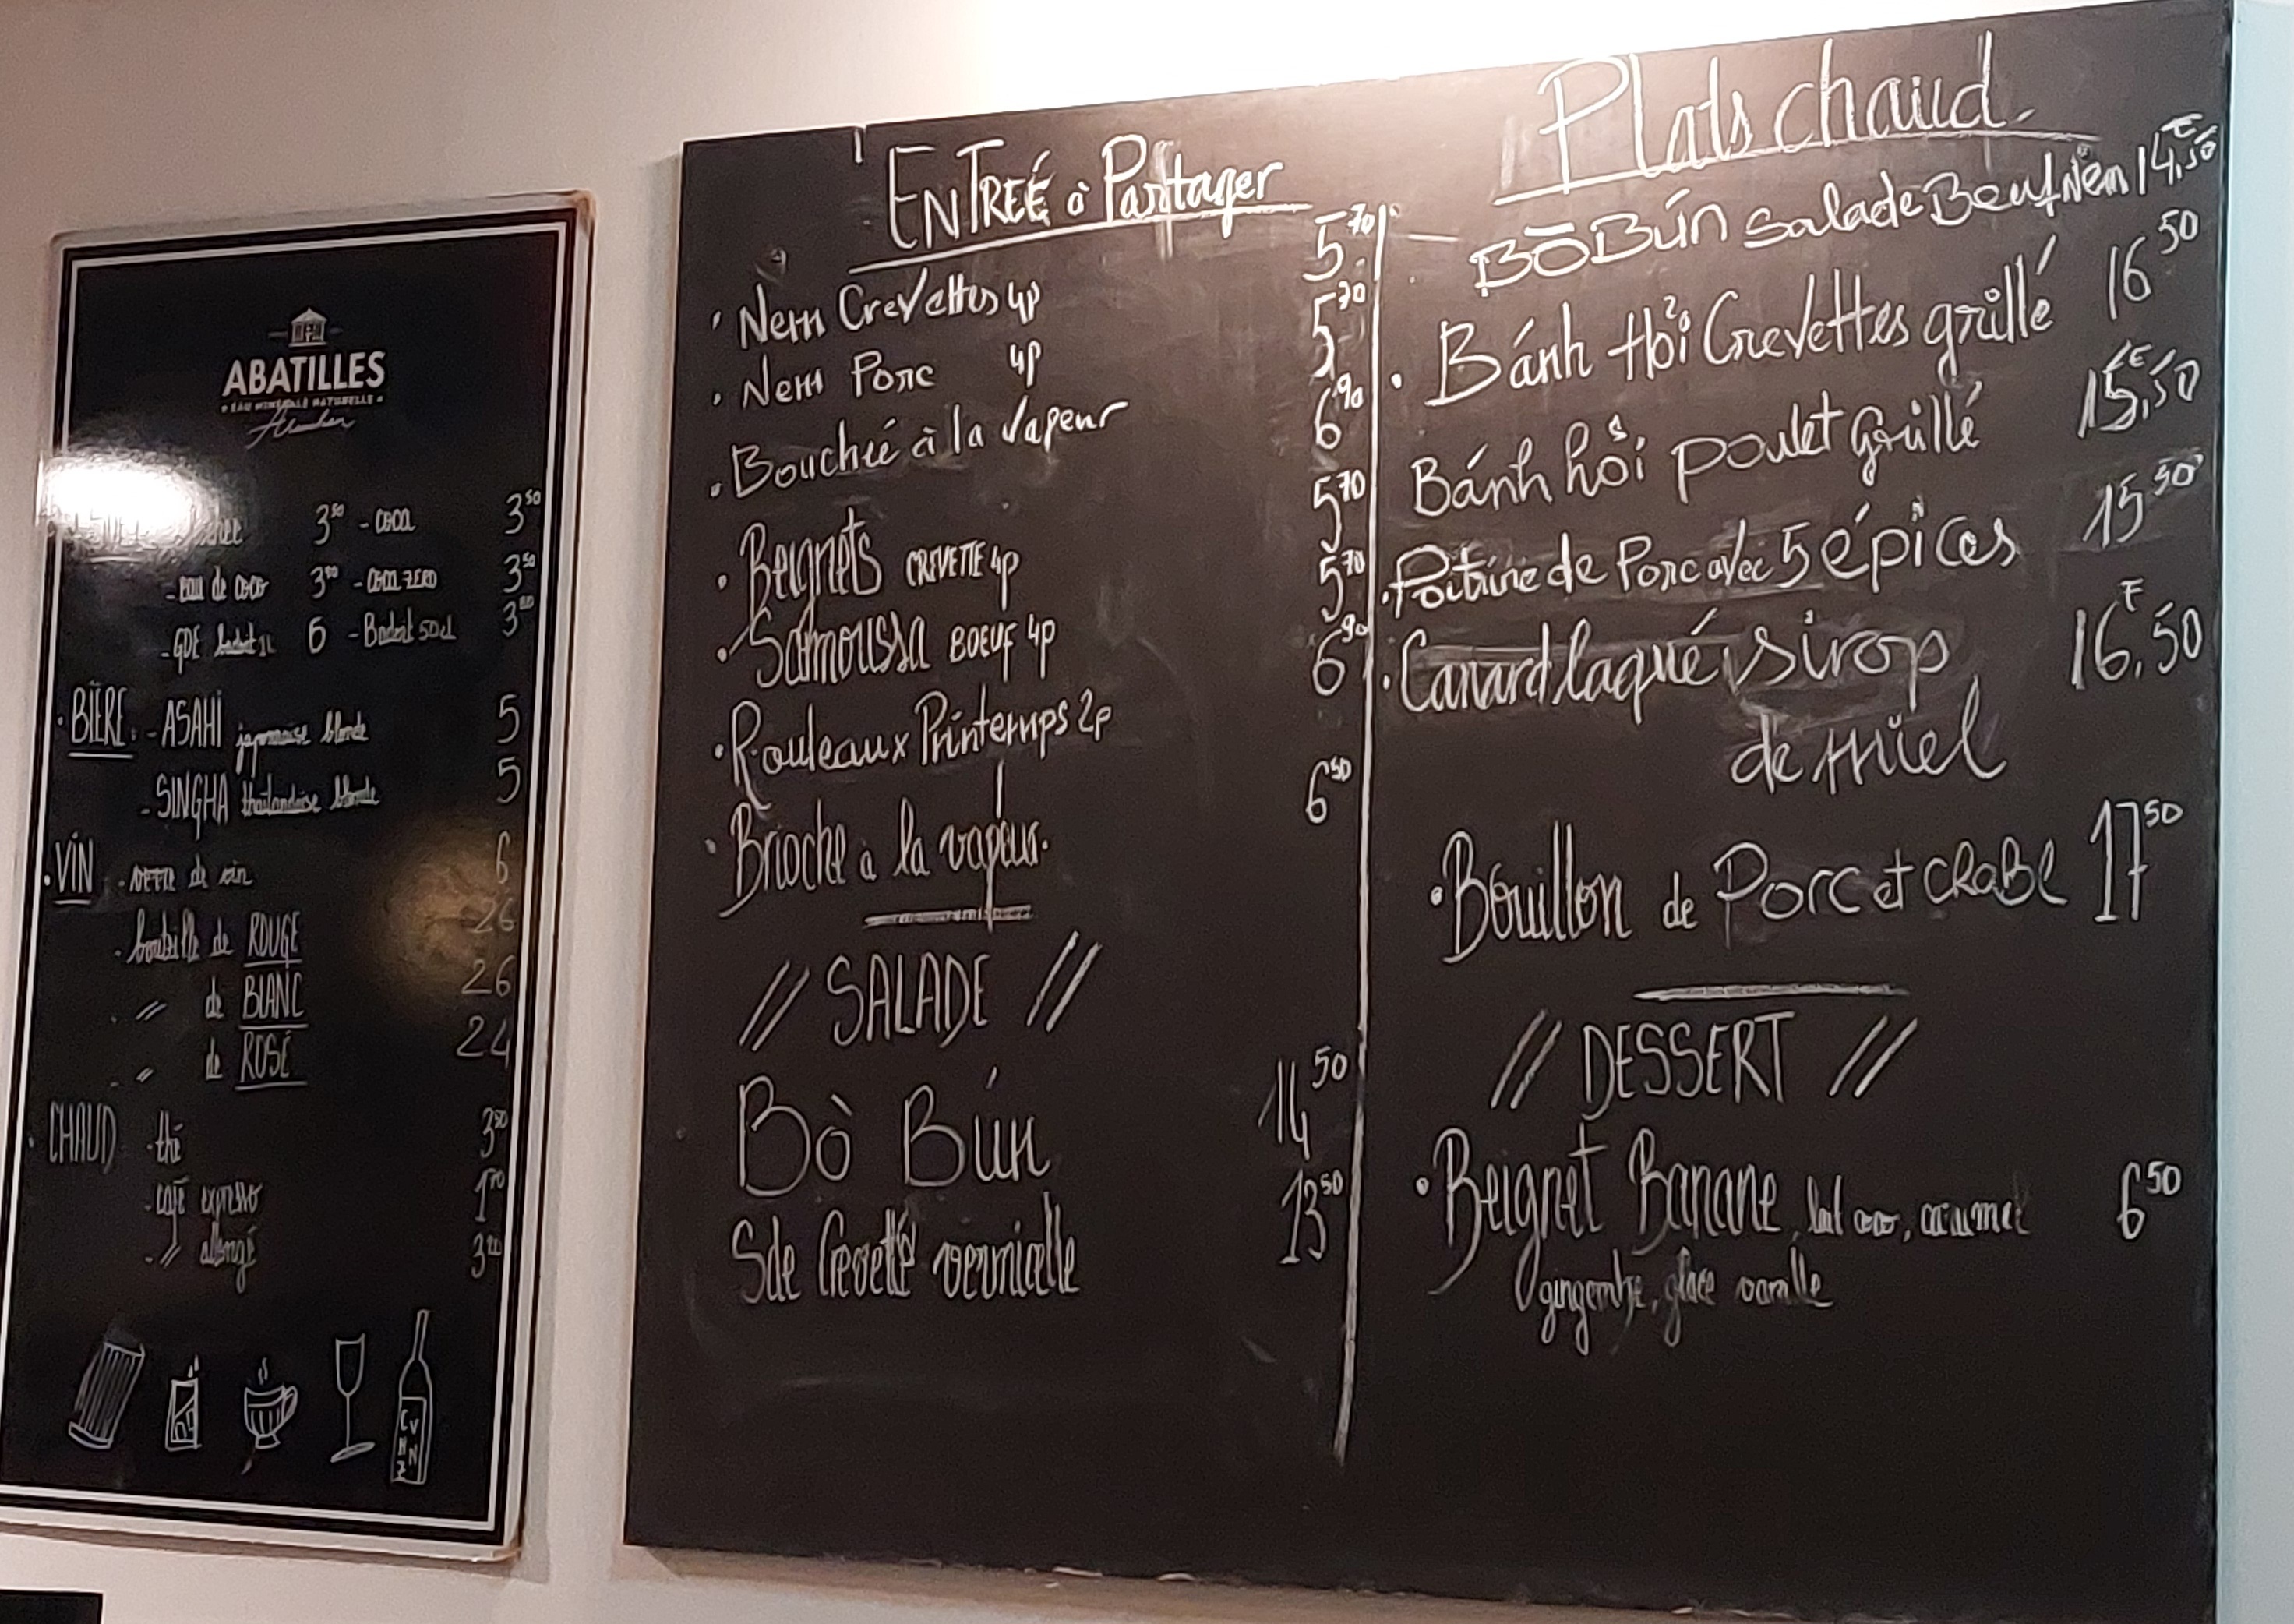 ABATILLES
• EAU MINÉRALE NATURELLE •
3⁵⁰ - COCA 3⁵⁰
- eau de coco 3⁵⁰ - COCA ZERO 3⁵⁰
- GDE badoit 1L 6 - Badoit 50cl 3⁵⁰
• BIÈRE - ASAHI japonaise blonde 5
- SINGHA thaïlandaise blonde 5
• VIN - verre de vin 6
- bouteille de ROUGE 26
- // de BLANC 26
- // de ROSÉ 24
• CHAUD - thé 3⁵⁰
- café expresso 1⁷⁰
- // allongé 3²⁰
CVNNZ
ENTREÉ à Partager
• Nem Crevettes 4p 5⁷⁰
• Nem Porc 4p 5⁷⁰
• Bouchée à la vapeur 6⁹⁰
• Beignets CREVETTE 4p 5⁷⁰
• Samoussa BOEUF 4p 5⁷⁰
• Rouleaux Printemps 2p 6⁹⁰
• Brioche à la vapeur. 6⁵⁰
// SALADE //
Bò Bún 14⁵⁰
Sde Crevette vermicelle 13⁵⁰
Plats chaud
• BŌ BÚN Salade Beuf Nem 14,50€
• Bánh Hỏi Crevettes grillé 16⁵⁰
Bánh hỏi poulet Grillé 15,50€
• Poitrine de Porc avec 5 épices 15⁵⁰
• Canard laqué sirop 16,50€
de miel
• Bouillon de Porc et CRABE 17⁵⁰
// DESSERT //
• Beignet Banane, lait coco, caramel 6⁵⁰
gingembre, glace vanille